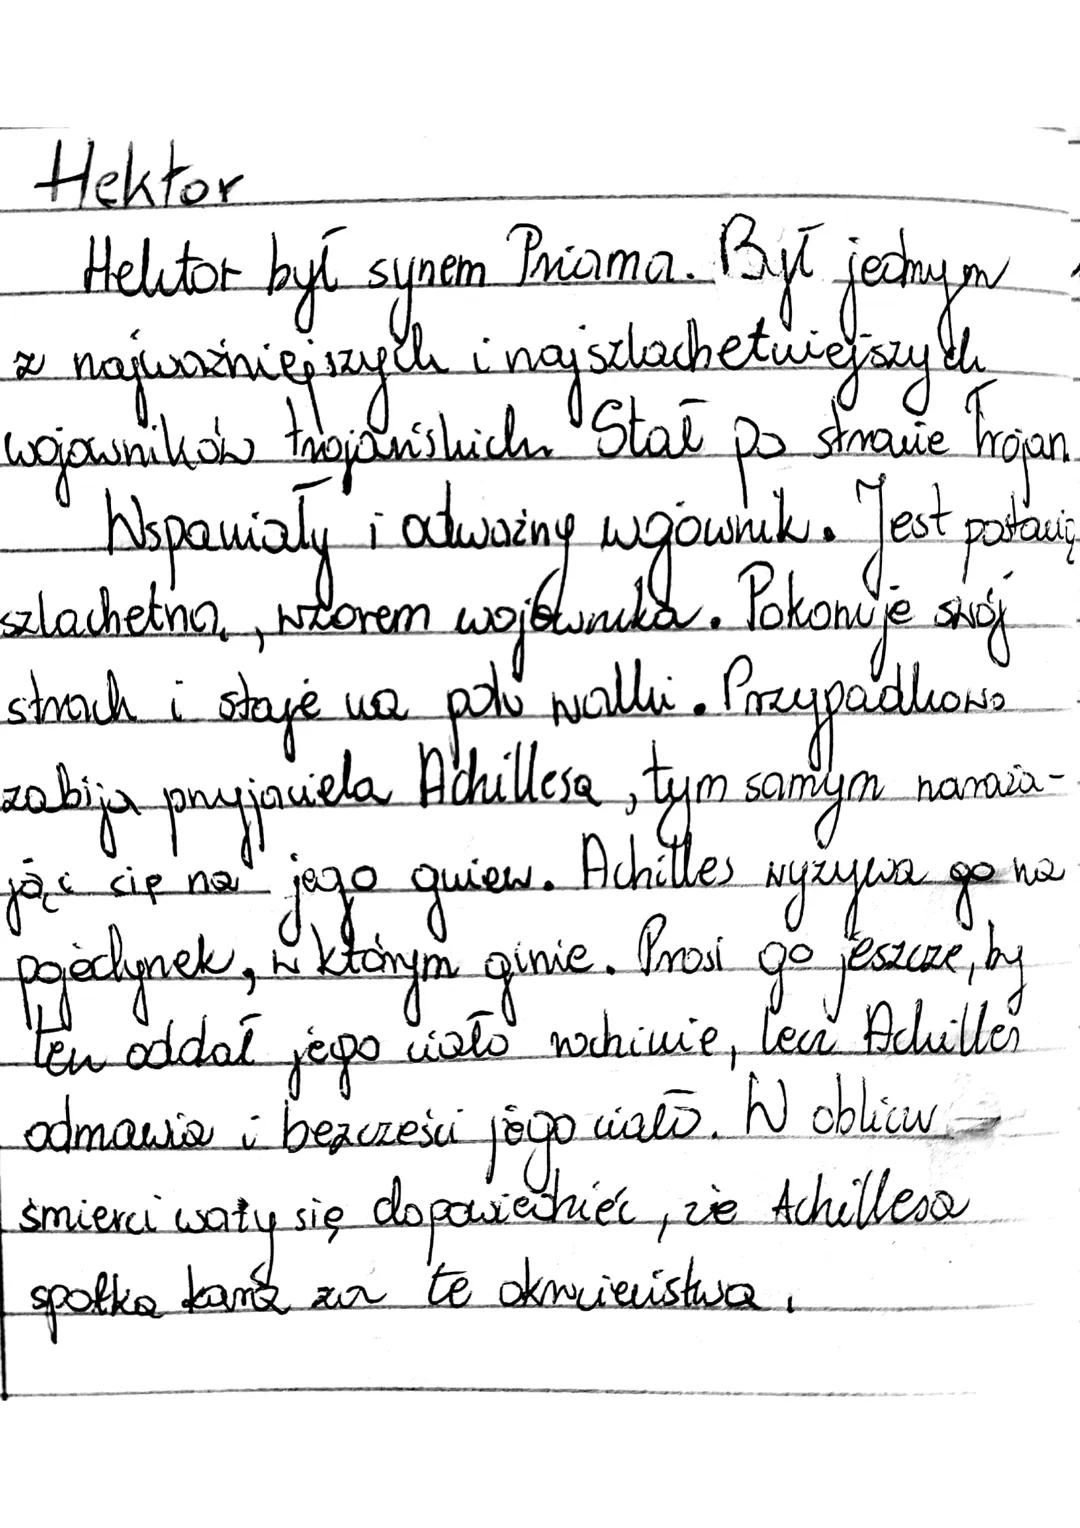 Hektor
Hektor był synem Priama. Był jednym
z najważniejszych i najszlachetniejszych
wojowników trojańskich. Stał po stronie Trojan.
Wspaniały i odważny wojownik. Jest postacią
szlachetną, wzorem wojownika. Pokonuje swój
strach i staje na polu walki. Przypadkowo
zabija przyjaciela Achillesa, tym samym naraża-
jąc się na jego gniew. Achilles wyzywa go na
pojedynek, w którym ginie. Prosi go jeszcze, by
ten oddał jego ciało rodzinie, lecz Achilles
odmawia i bezcześci jego ciało. W obliczu
śmierci waży się dopowiedzieć, że Achillesa
spotka kara za te okrucieństwa.